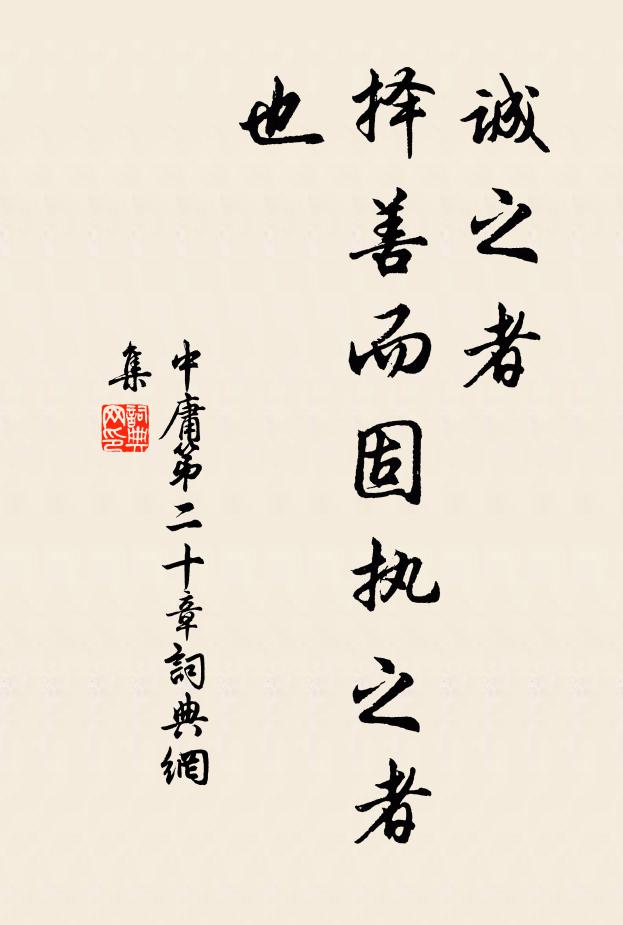 诚之者
择善而固执之者
也
中庸第二十章詞典網
集
詞典网印